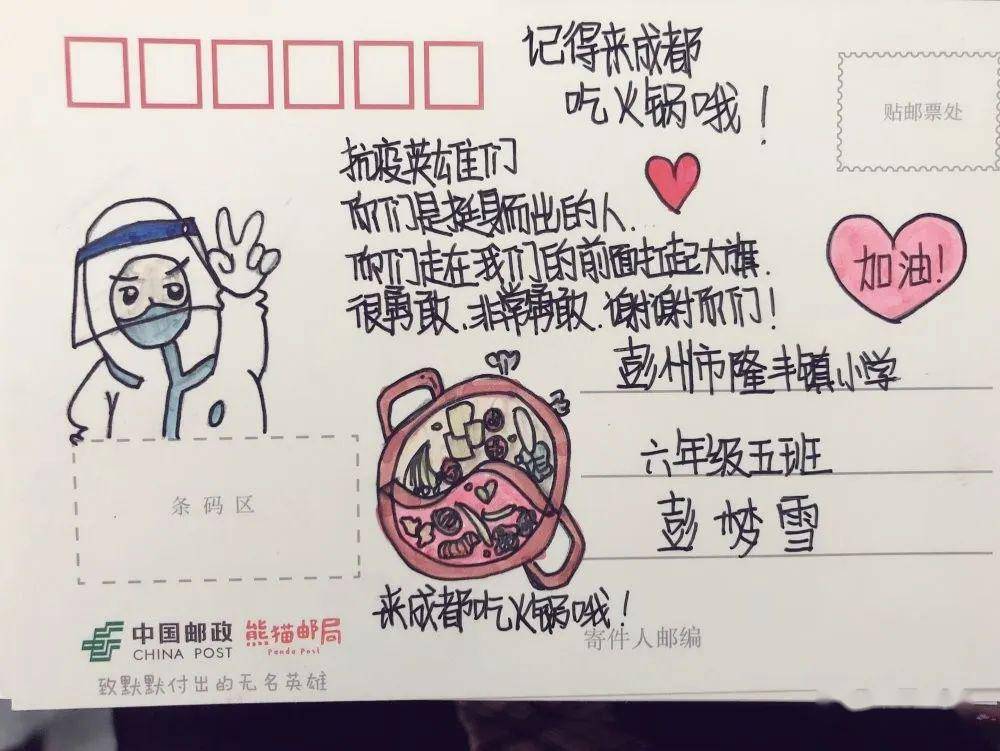 记得来成都
吃火锅哦！
贴邮票处
抗疫英雄们
你们是挺身而出的人.
你们走在我们的前面扛起大旗.
很勇敢.非常勇敢.谢谢你们！
加油！
彭州市隆丰镇小学
六年级五班
彭梦雪
条码区
来成都吃火锅哦！
寄件人邮编
中国邮政
CHINA POST
熊猫邮局
Panda Post
致默默付出的无名英雄